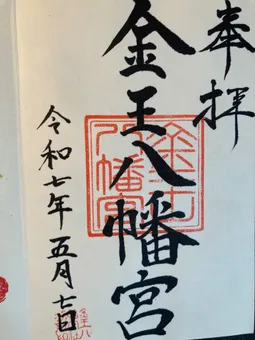 奉拝
金王八幡宮
令和七年五月七日
金王八幡宮